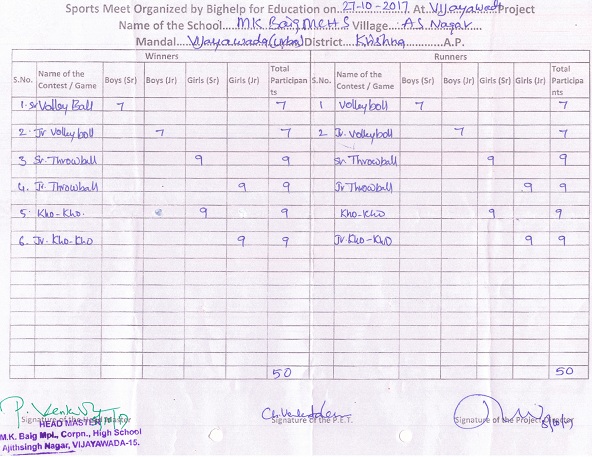 Sports Meet Organized by Bighelp for Education on 27-10-2017 At Vijayawada Project
Name of the School M.K. Baig MCHS Village A.S. Nagar
Mandal Vijayawada (Urban) District Krishna A.P.
Winners Runners
S.No. Name of the Contest / Game Boys (Sr) Boys (Jr) Girls (Sr) Girls (Jr) Total Participants S.No. Name of the Contest / Game Boys (Sr) Boys (Jr) Girls (Sr) Girls (Jr) Total Participants
1. Sr Volley Ball 7 7 1 Volleyboll 7 7
2. Jr Volleyboll 7 7 2 Jr. Volleyboll 7 7
3 Sr. Throwball 9 9 Sr Throwball 9 9
4. Jr. Throwball 9 9 Jr Throwball 9 9
5. Kho-Kho. 9 9 Kho-Kho 9 9
6. Jr. Kho-Kho 9 9 Jr. Kho-Kho 9 9
50 50
Signature of the Head Master Signature of the P.E.T. Signature of the Project Director
HEAD MASTER
M.K. Baig Mpl., Corpn., High School
Ajithsingh Nagar, VIJAYAWADA-15.